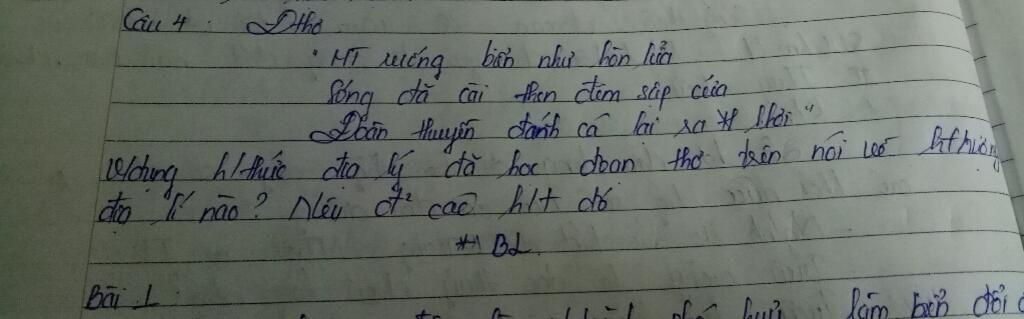 Câu 4: Đthơ
"MT xuống biển như hòn lửa
Sóng đã cài then đêm sập cửa
Đoàn thuyền đánh cá lại ra * khơi"
V/dụng k/thức địa lý đã học đoạn thơ trên nói về h.tượng
địa lí nào? Nêu đ² các h/t đó
BL
Bài 1
làm biến đổi